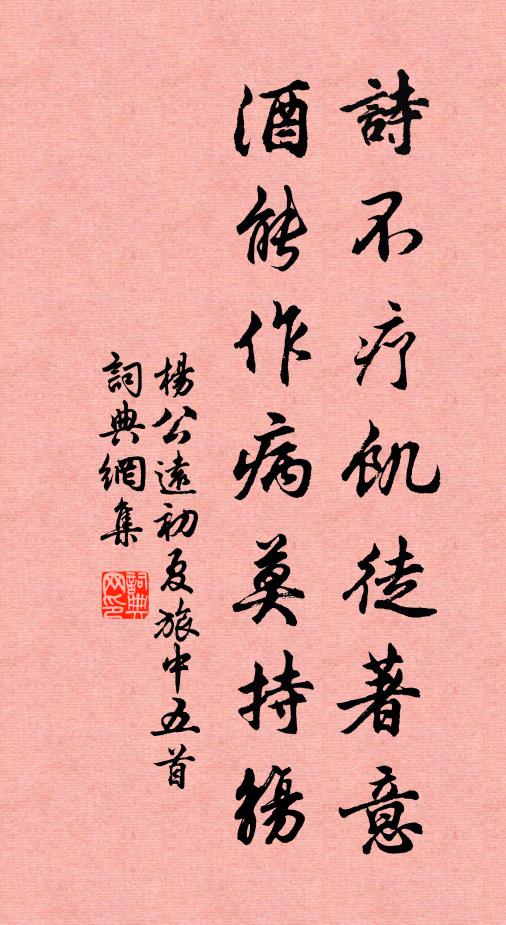 詩不疗飢徒著意
酒能作病莫持觴
楊公遠初夏旅中五首
詞典網集
詞典网印